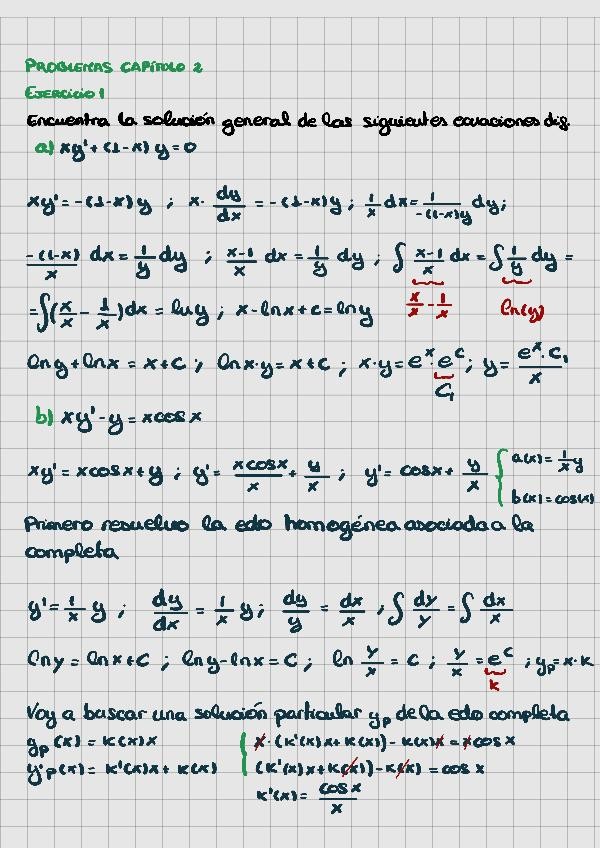 PROBLEMAS CAPÍTULO 2
EJERCICIO 1
Encuentra la solución general de las siguientes ecuaciones dig.
a) xy' + (1-x) y = 0
xy' = -(1-x)y ; x· dy/dx = -(1-x)y ; 1/x dx = 1/-(1-x)y dy ;
-(1-x)/x dx = 1/y dy ; x-1/x dx = 1/y dy ; ∫ x-1/x dx = ∫ 1/y dy =
x/x - 1/x ln(y)
= ∫(x/x - 1/x)dx = ln y ; x - ln x + c = ln y
ln y + ln x = x + c ; ln x·y = x + c ; x·y = e^x · e^c ; y = e^x · C₁/x
C₁
b) xy' - y = x cos x
xy' = x cos x + y ; y' = x cos x/x + y/x ; y' = cos x + y/x { a(x) = 1/x y
b(x) = cos(x)
Primero resuelvo la edo homogénea asociada a la
completa
y' = 1/x y ; dy/dx = 1/x y ; dy/y = dx/x ; ∫ dy/y = ∫ dx/x
ln y = ln x + C ; ln y - ln x = C ; ln y/x = c ; y/x = e^c ; yp = x·k
k
Voy a buscar una solución particular yp de la edo completa
yp (x) = k(x) x { x · (k'(x) x + k(x)) - k(x) x = x cos x
y'p(x) = k'(x) x + k(x) (k'(x) x + k(x)) - k(x) = cos x
k'(x) = cos x/x